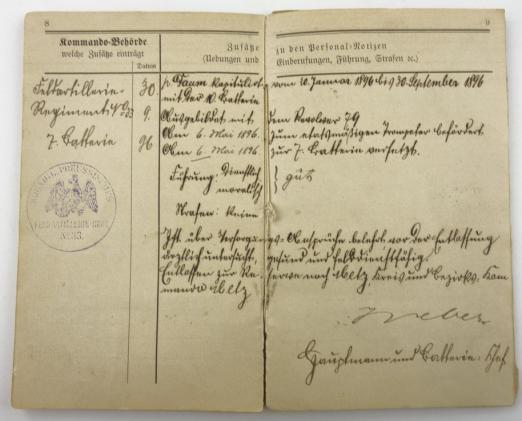 8
9
Kommando-Behörde
welche Zusätze einträgt
Datum
Zusätze zu den Personal-Notizen
(Uebungen und Einberufungen, Führung, Strafen &c.)
Feldartillerie- 30. Kapitulirt vom 10. Januar 1896 bis 30. September 1896
Regiment No 33 9. mit der Batterie
7. Batterie 96 Ausgebildet mit dem Revolver 79
Am 6. Mai 1896. zum etatsmäßigen Trompeter befördert.
Am 6. Mai 1896. zur 7. Batterie versetzt.
Führung: Dienstlich
moralisch } gut
Strafen: Keine
KÖNIGL. PREUSSISCHES
FELD-ARTILLERIE-REGT
No 33.
Ist über Versorgungs-Ansprüche belehrt vor der Entlassung
ärztlich untersucht, gesund und felddienstfähig.
Entlassen zur Reserve nach Metz, Kreis und Bezirks-Kom
mando Metz
Weber
Hauptmann und Batterie-Chef.